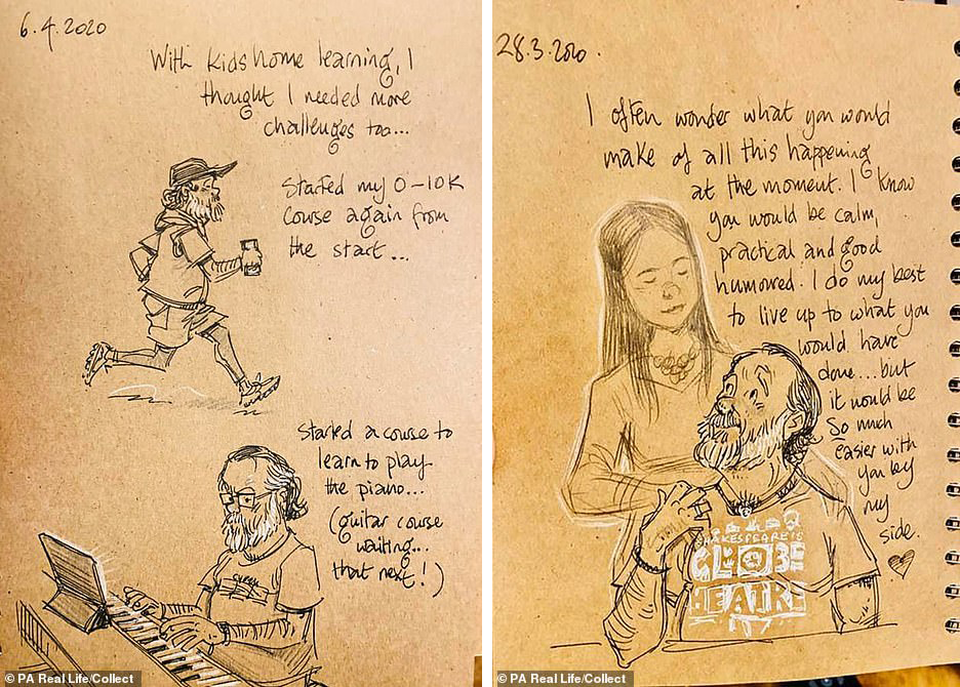 6.4.2020
With kids home learning, I
thought I needed more
challenges too...
Started my 0-10K
course again from
the start...
Started a course to
learn to play
the piano...
(guitar course
waiting...
that next!)
© PA Real Life/Collect
28.3.2020.
I often wonder what you would
make of all this happening
at the moment. I know
you would be calm,
practical and good
humoured. I do my best
to live up to what you
would have
done...but
it would be
so much
easier with
you by
my
side.
SHAKESPEARE'S
GLOBE
THEATRE
© PA Real Life/Collect